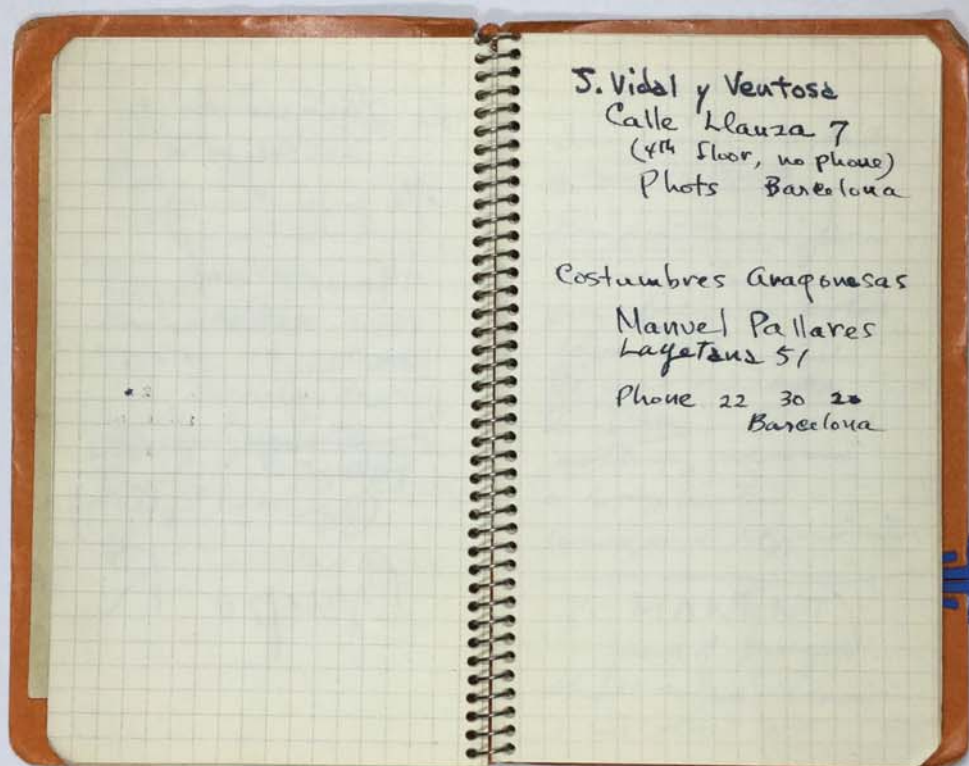 J. Vidal y Ventosa
Calle Llanza 7
(4th floor, no phone)
Phots Barcelona
Costumbres Aragonesas
Manuel Pallares
Layetana 51
Phone 22 30 20
Barcelona